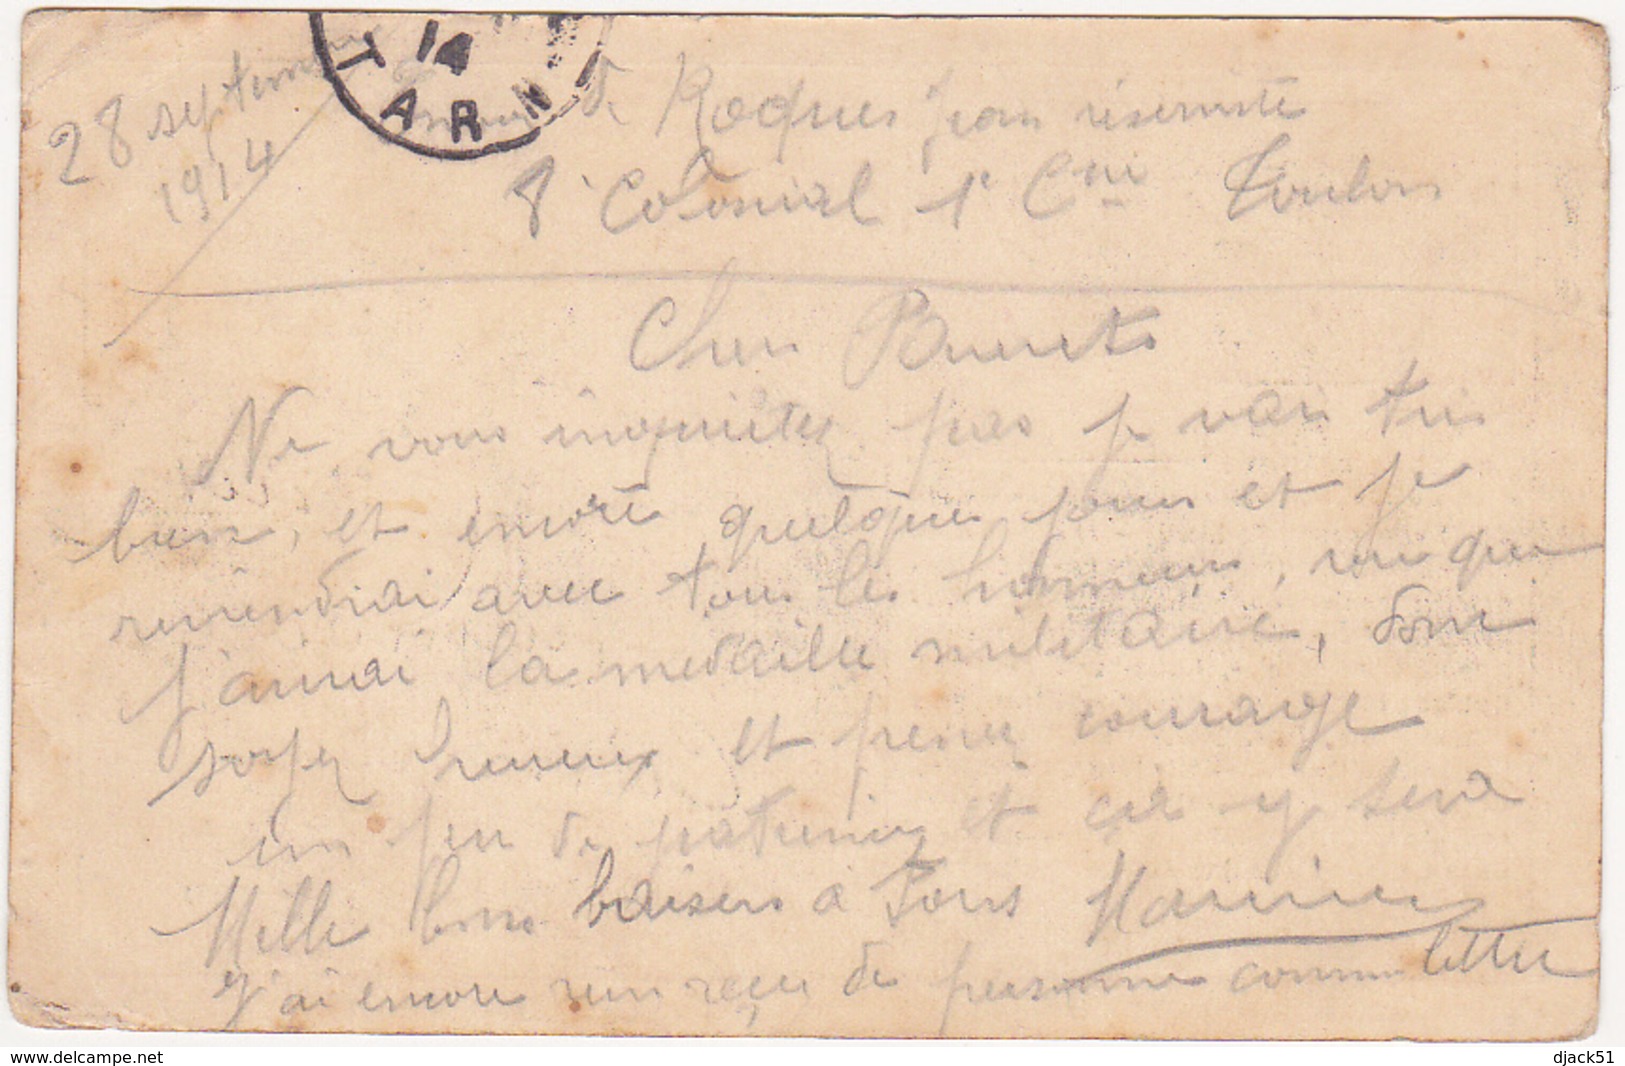 14
TARN
28 septembre
1914
Envoi de Roques Jean réserviste
8e Colonial 1e Cnie Toulon
Chers Parents
Ne vous inquietez pas je vais tres
bien, et encore quelques jours et je
reviendrai avec tous les honneurs, vu que
j'aurai la medaille militaire, donc
soyez heureux et prenez courage
un peu de patience et ça y sera
Mille bons baisers a Tous
j'ai encore rien reçu de personne comme lettre
www.delcampe.net
djack51